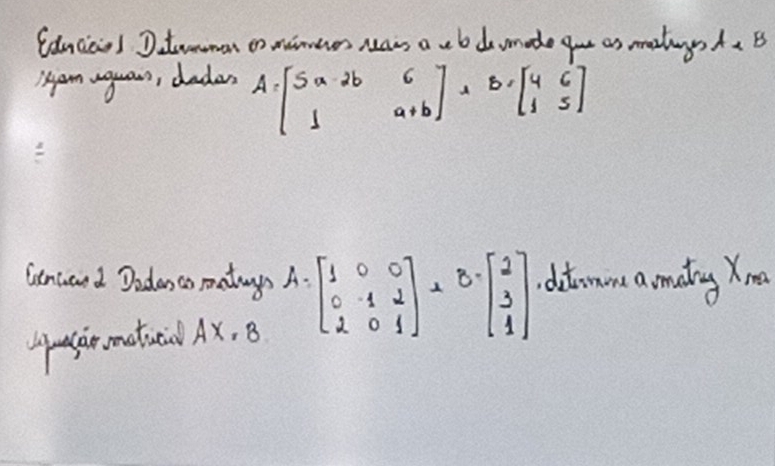 Exercício 1 Determinar os números reais a e b de modo que as matrizes A e B
sejam iguais, dadas A = [5a - 2b 6
1 a+b] e B = [4 6
1 5]
=
Exercício 2 Dadas as matrizes A = [1 0 0
0 -1 2
2 0 1] e B = [2
3
1], determine a matriz X na
equação matricial AX = B.